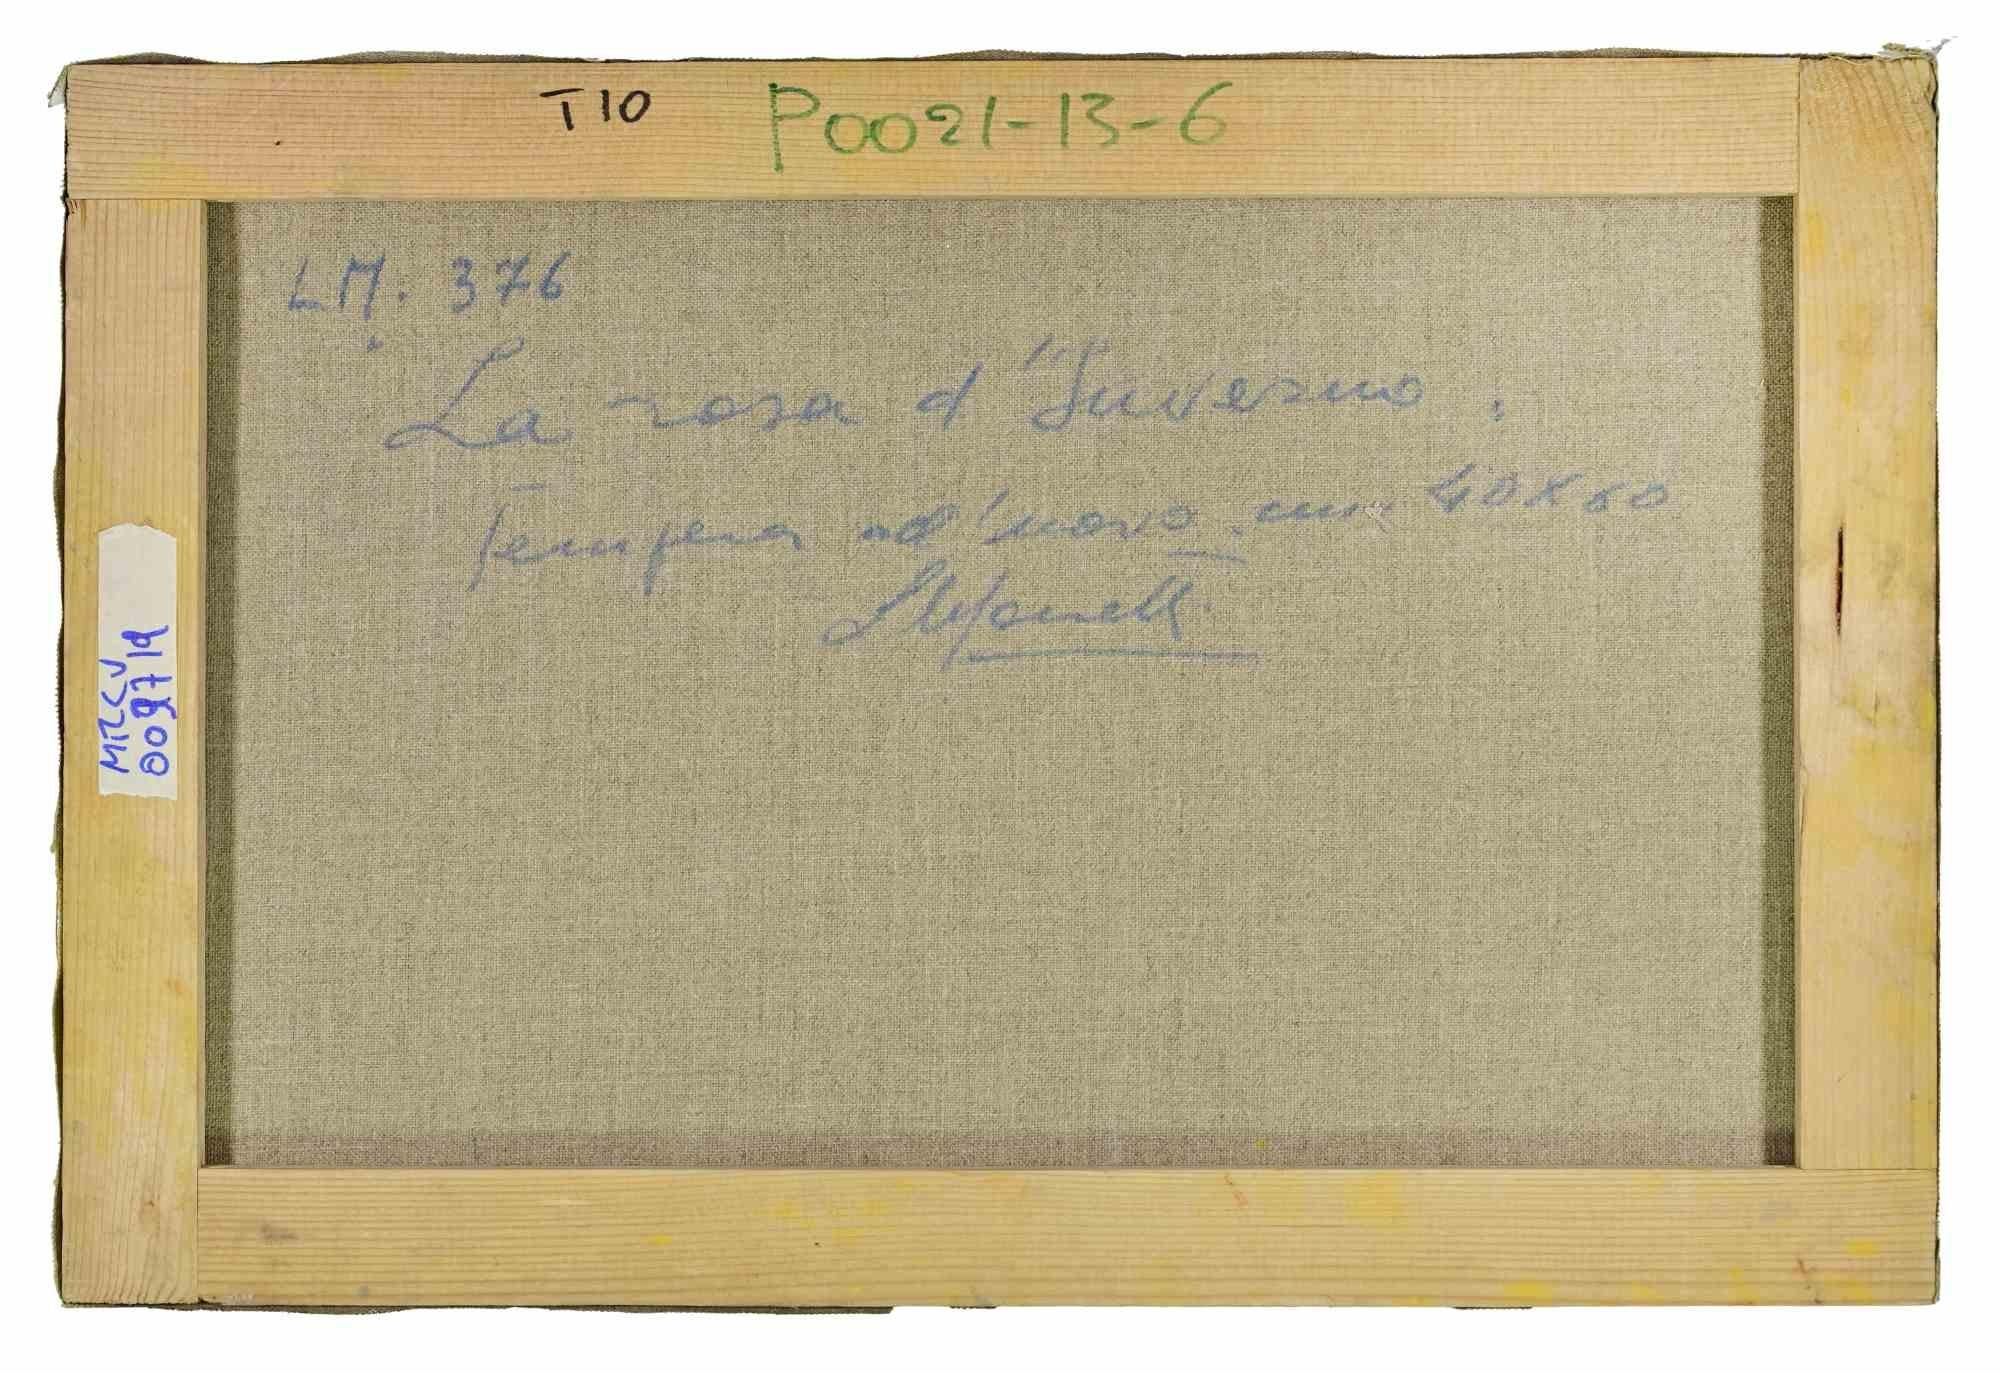 T10 P0021-13-6
LM. 376
La rosa d'Inverno.
Tempera ad'uovo. cm. 40x60
Stefanelli